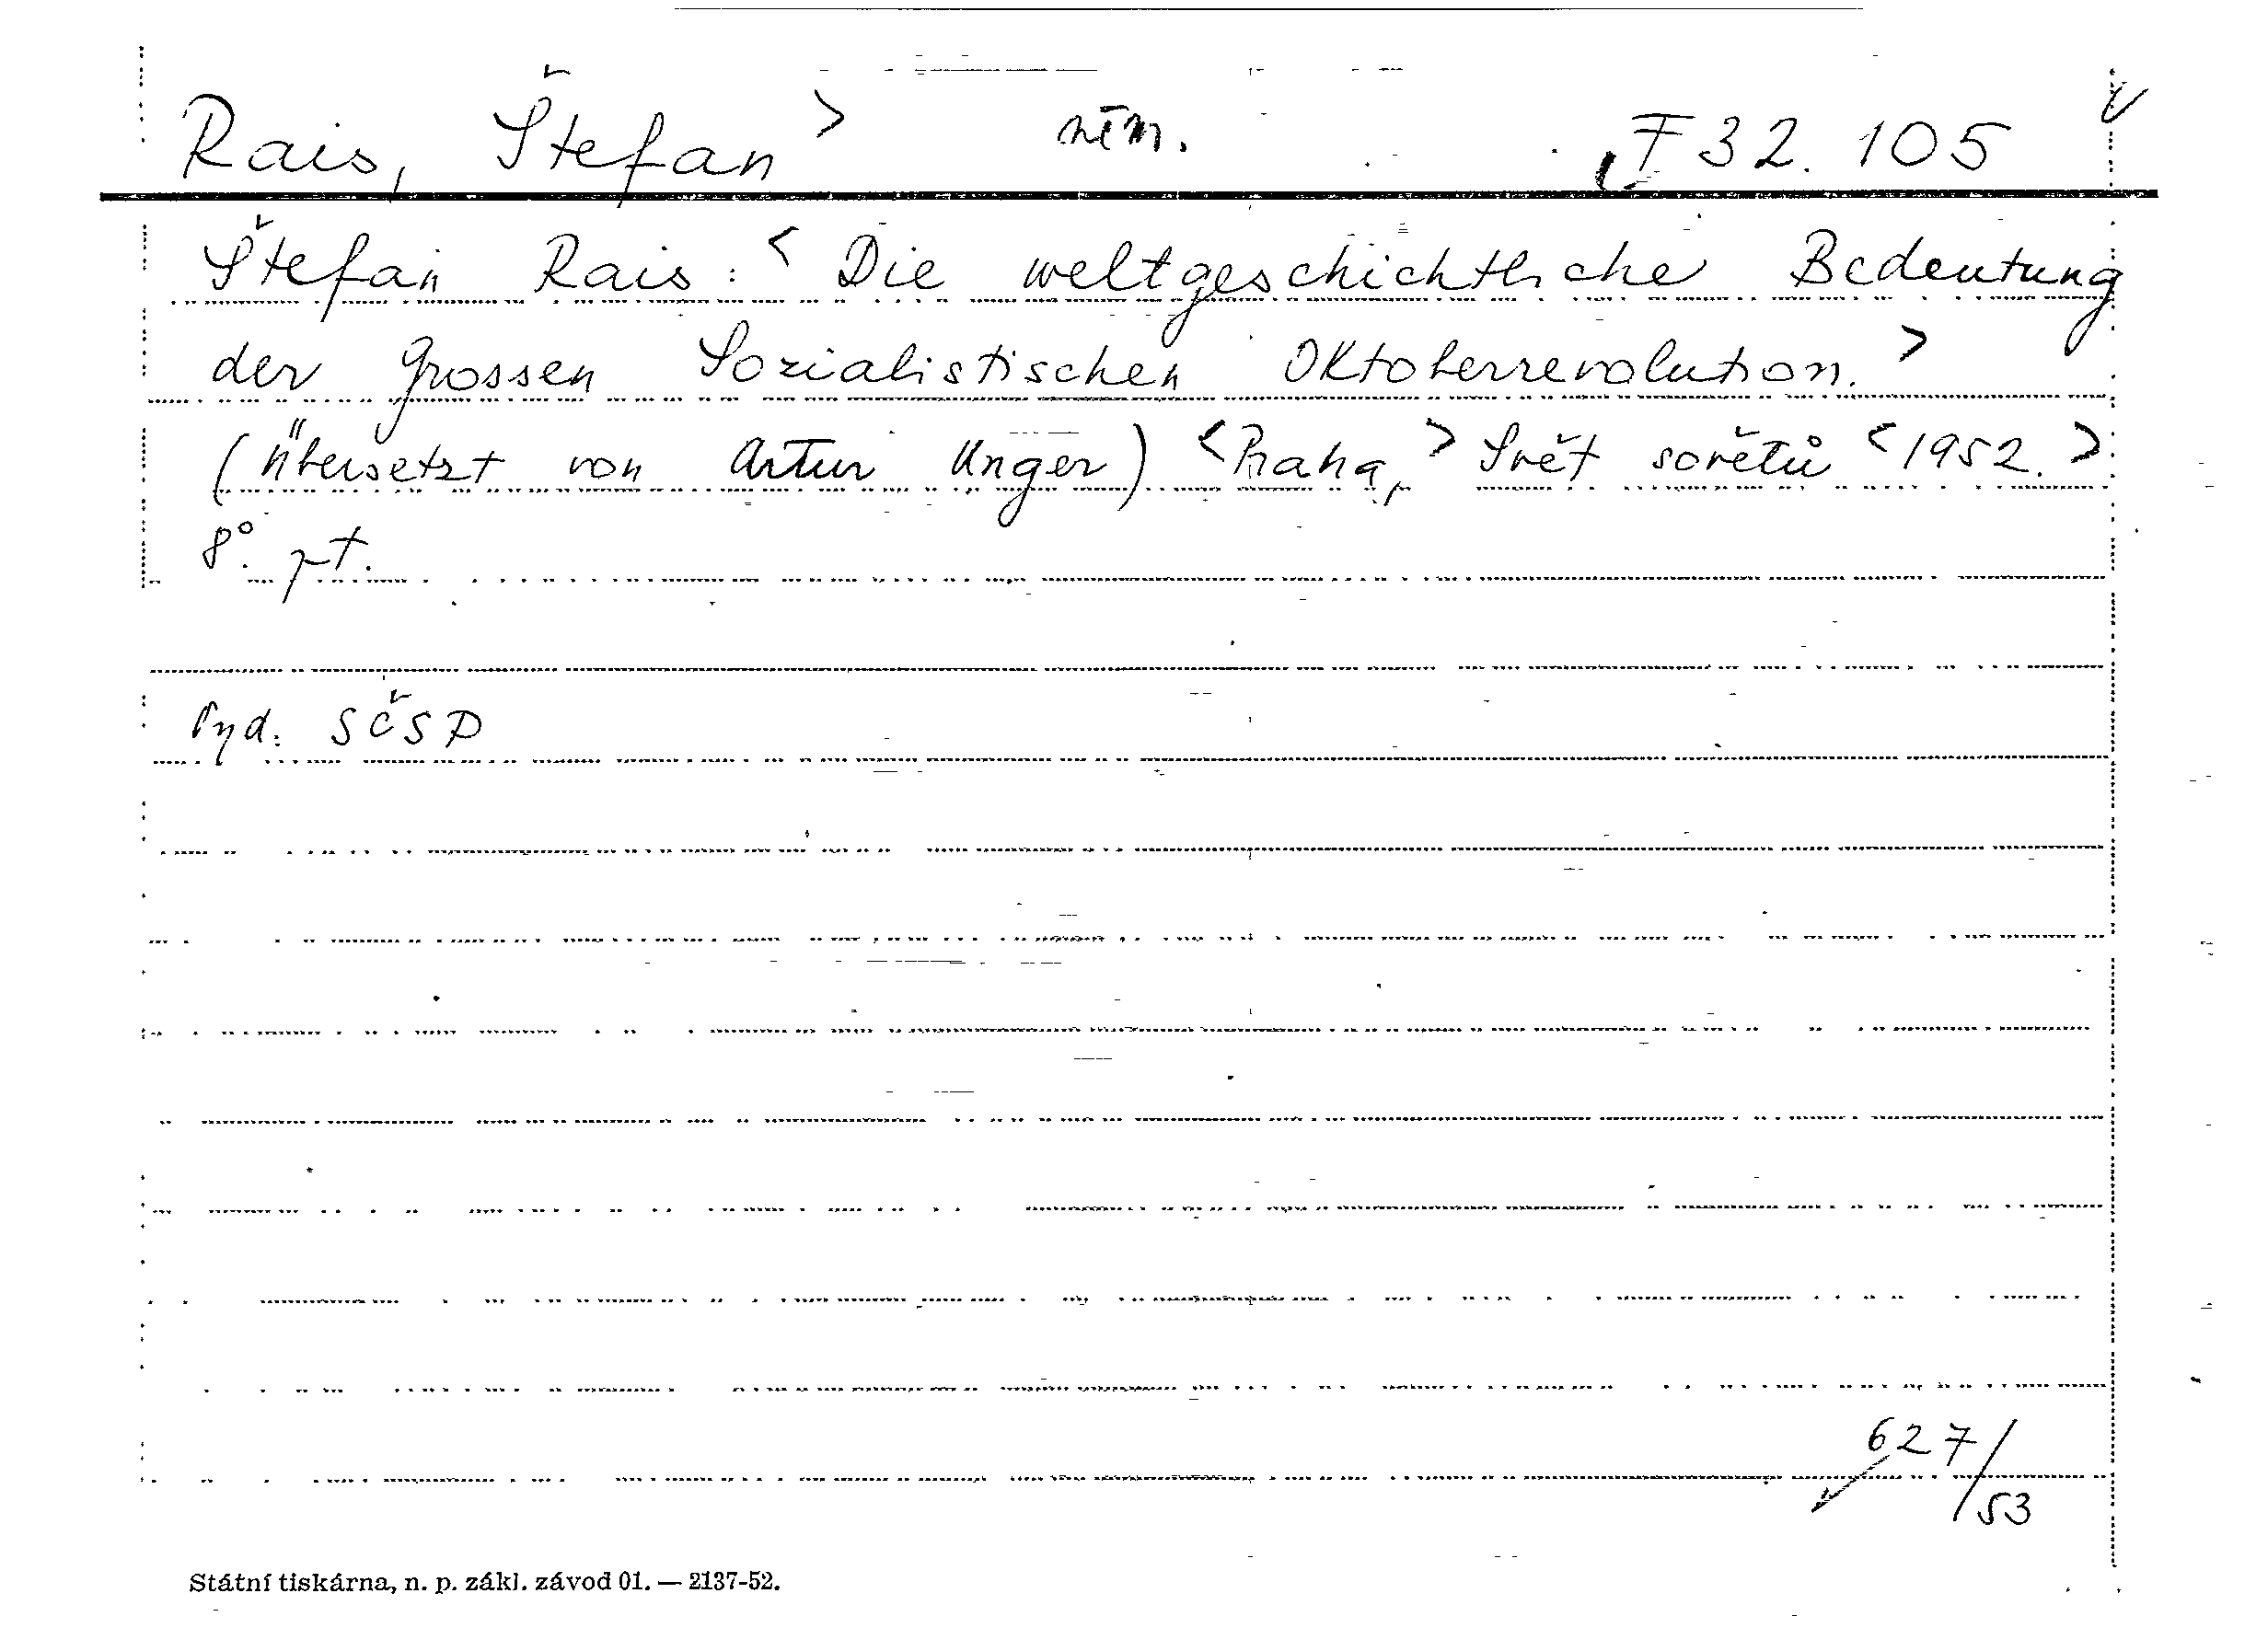 Rais, Štefan > něm. F 32.105
Štefan Rais: < Die weltgeschichtliche Bedeutung
der Grossen Sozialistischen Oktoberrevolution. >
(Übersetzt von Artur Unger) < Praha, > Svět sovětů < 1952. >
8°. pt.
Vyd. SČSP
627/53
Státní tiskárna, n. p. zákl. závod 01. — 2137-52.